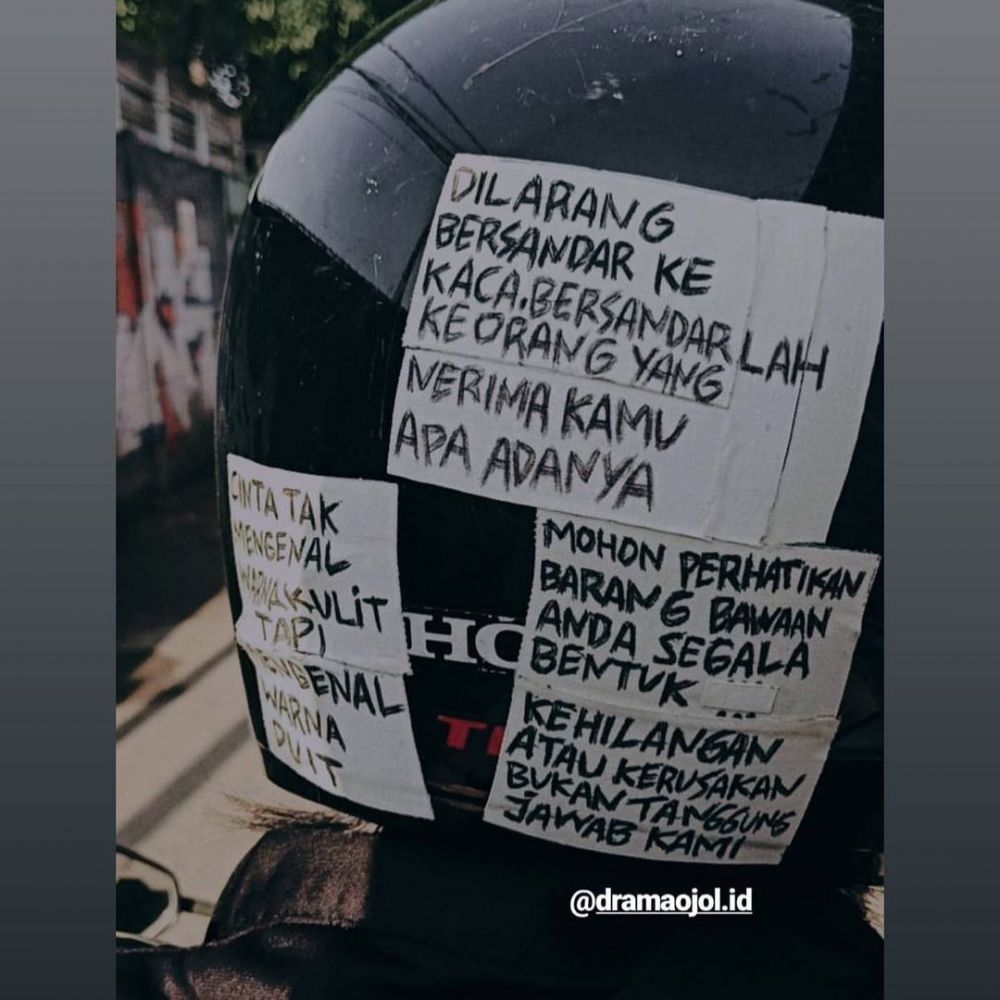 DILARANG
BERSANDAR KE
KACA.BERSANDARLAH
KEORANG YANG
NERIMA KAMU
APA ADANYA
CINTA TAK
MENGENAL
WARNA KULIT
TAPI
MENGENAL
WARNA
DUIT
HO
MOHON PERHATIKAN
BARANG BAWAAN
ANDA SEGALA
BENTUK
KEHILANGAN
ATAU KERUSAKAN
BUKAN TANGGUNG
JAWAB KAMI
@dramaojol.id